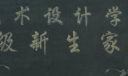 术设计学
级新生家